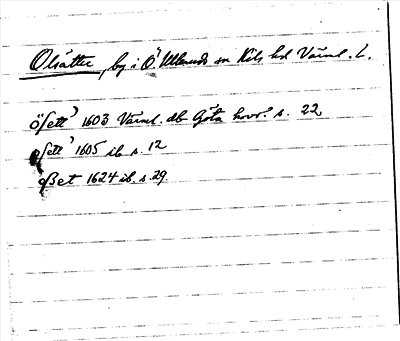 Olsätter, by i Ö Ullerud sn Kils hd Värml. L.
ösett 1603 Värml. db Göta hovr. s. 22
osett 1605 ib s. 12
oßet 1624 ib. s. 29.